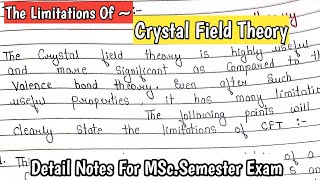 The Limitations Of ~
Crystal Field Theory
The Crystal field theory is highly useful
and more significant as compared to th
Valence bond theory. Even after such
useful properties it has many limitation
The following points will
clearly state the limitations of CFT :-
Detail Notes For MSc.Semester Exam